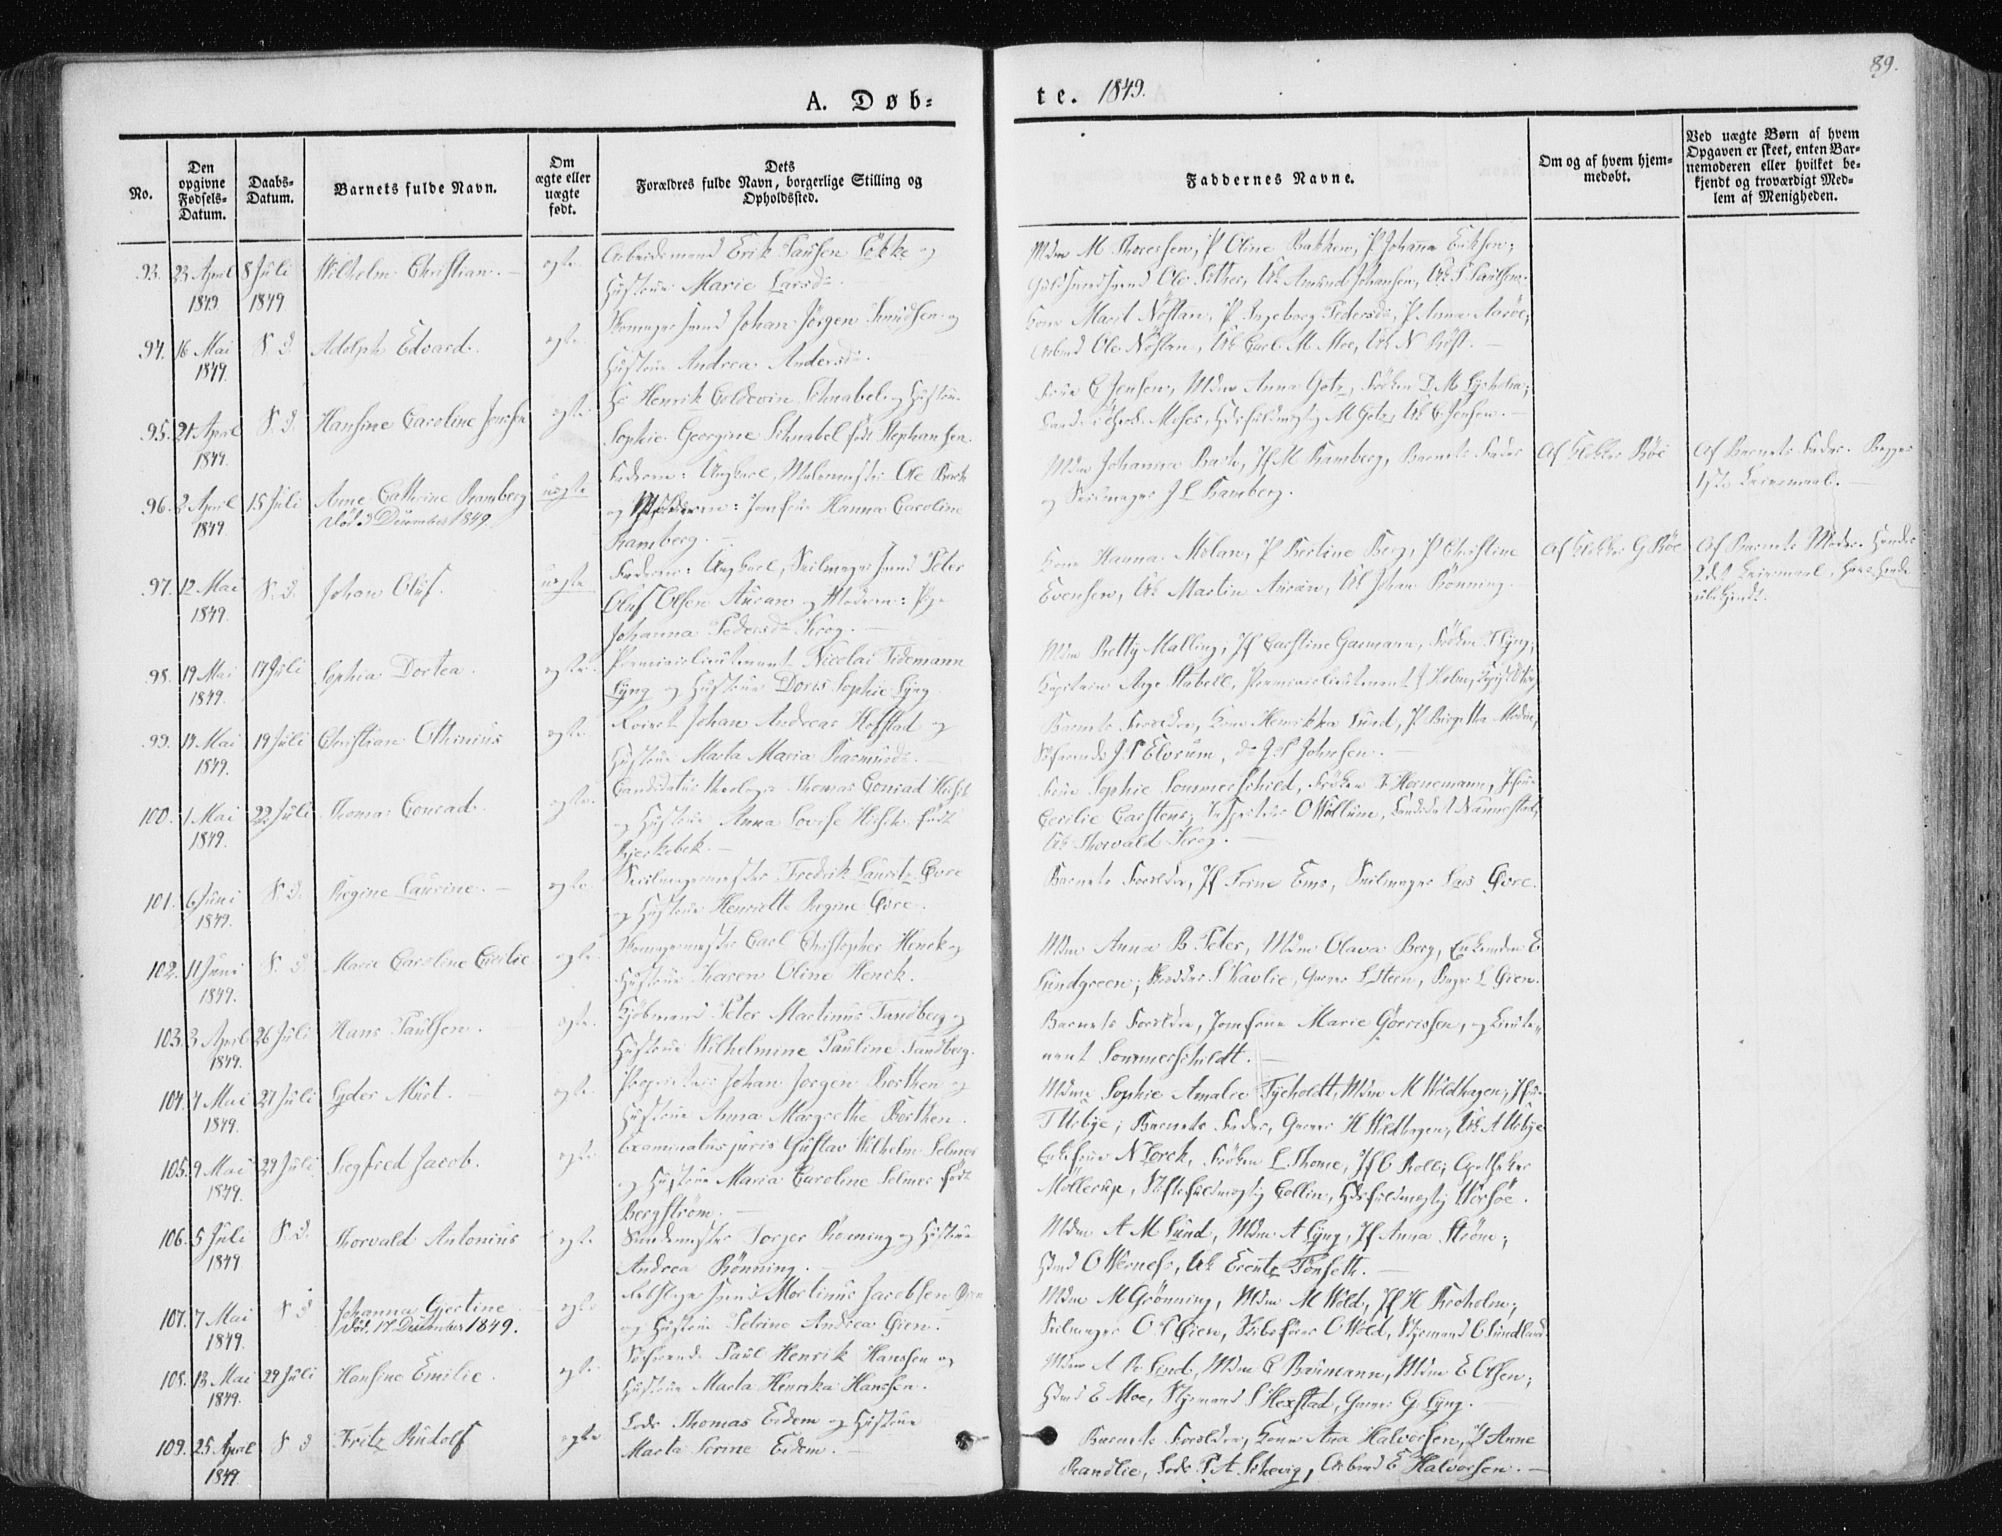 89.
A. Døb-
te. 1849.
No.
Den opgivne Fødsels-Datum.
Daabs-Datum.
Barnets fulde Navn.
Om ægte eller uægte født.
Dets Forældres fulde Navn, borgerlige Stilling og Opholdssted.
Faddernes Navne.
Om og af hvem hjemmedøbt.
Ved uægte Børn af hvem Opgaven er skeet, enten Barnemoderen eller hvilket bekjendt og troværdigt Medlem af Menigheden.
93. 23 April 1849 8 Juli 1849 Wilhelm Christian. ægte Arbeidsmand Erik Paulsen Løkke og
Hustrue Marie Larsd.
P Oline Bakken, P Johanna Eriksen,
Ole Sæther, Uk Amund Johansen, Uk P Paulsen.
94. 16 Mai 1849. S. D. Adolph Edvard. ægte Skomager Svend Johan Jørgen Knudsen og
Hustrue Andrea Andersd.
Kone Marit Nøstan, P Ingeborg Pedersd, P Anna Aarøe,
Arbmd Ole Nøstan, Uk Carl M Moe, Uk N Røst.
95. 21 April 1849. S. D. Hansine Caroline Jensen ægte Hr Henrik Coldevin Schnabel og Hustrue
Sophie Georgine Schnabel født Stephansen.
Frue C Jensen, Mdm Anna Gotz, Frøken D M Lysholm,
M Gotz, Uk C Jensen.
96. 2 April 1849. 15 Juli Anne Cathrine Ramberg uægte Faderen: Ungkarl, Malermester Ole Bark
død 3 December 1849.
og Moderen: Jomfrue Hanna Caroline
Ramberg.
Mdm Johanna Bark, Jf M Ramberg, Barnets Fader
og Seilmager J L Ramberg.
Af Klokker Røe
Af Barnets Fader. Begges
1ste Leiermaal.
97. 12 Mai 1849. S. D. Johan Oluf. uægte Faderen: Ungkarl, Seilmager Svend Peter
Oluf Olsen Auran og Moderen: Pige
Johanna Pedersd Krog.
Kone Hanna Melan, P Bertine Berg, P Christine
Evensen, Uk Martin Auran, Uk Johan Rønning.
Af Klokker G Røe
Af Barnets Moder. Hendes
2det Leiermaal, Hans
ubekjendt.
98. 19 Mai 1849. 17 Juli Sophia Dortea. ægte Premierlieutenant Nicolai Tidemann
Lyng og Hustrue Doris Sophie Lyng.
Mdm Betty Malling, Jf Carstine Garmann, Frøken T Lyng,
Kaptein Aage Stabell, Premierlieutenant J Holm,
99. 14 Mai 1849. 19 Juli Christian Othinius ægte Johan Andreas Hofstad og
Hustrue Marta Maria Rasmusd.
Barnets Forældre, Kone Henrikka Lund, P Birgitha Moen,
J P Elvrum, J P Johnsen.
100. 1 Mai 1849. 22 Juli Thomas Conrad. ægte Candidatus theologia Thomas Conrad
og Hustrue Anna Lovise født
Bjerkebek.
Frue Sophie Sommerschild, Frøken Hornemann,
Cecilie Carstens, O Wollum, Candidat Nannestad,
Uk Thorvald Krog.
101. 6 Juni 1849. S. D. Regine Laurine. ægte Seilmagermester Fredrik Lauritz Qvre
og Hustrue Henriette Regine Qvre.
Barnets Forældre, Jf Trine Ems, Seilmager Qvre.
102. 11 Juni 1849. S. D. Marie Caroline Cecilie ægte Skomagermester Carl Christopher Henck og
Hustrue Karen Oline Henck.
Mdm Anna B Peter, Mdm Olava Berg, E
Lundgreen, S Kavlie, Garver L Steen, Bager L Øien.
103. 3 April 1849. 26 Juli Hans Paulsen. ægte Kjøbmand Peter Martinus Sandberg og
Hustrue Wilhelmine Pauline Sandberg.
Barnets Forældre, Jomfrue Marie Gørrissen, og Lieute-
nant Sommerschildt.
104. 7 Mai 1849. 27 Juli Lyder Mürt. ægte Proprietær Johan Jørgen Borthen og
Hustrue Anna Margrethe Borthen.
Mdm Sophie Amalie Tycholdt, Mdm M Woldhagen,
T Ursbye, Barnets Fader, Garver H Woldhagen, Uk A Ursbye
105. 9 Mai 1849. 29 Juli. Siegfred Jacob. ægte Examinatus juris Gustav Wilhelm Selmer
og Hustrue Maria Caroline Selmer født
Bergstrøm.
N Lorck, Frøken L Thome, Jf C Roll, Apotheker
Møllerup, Stiftsfuldmægtig Collin, Worsøe.
106. 5 Juli 1849. S. D. Thorvald Antonius ægte Torger Rønning og Hustrue
Andrea Rønning.
Mdm A M Lund, Mdm A Lyng, Jf Anna Strøm,
O Werness, Uk Erentz Tønseth.
107. 7 Mai 1849. S D Johanna Gjertine ægte Svend Martinus Jacobsen Øien
død 17 December 1849.
og Hustrue Petrine Andrea Øien.
Mdm M Grønning, Mdm M Wold, Jf H Broholm,
Seilmager O P Øien, Skibsfører O Wold, Styrmand C Sundland.
108. 13 Mai 1849. 29 Juli Hansine Emilie. ægte Søfarende Paul Henrik Hanssen og
Hustrue Marta Henrika Hanssen.
Mdm A B Lind, Mdm C Baumann, Mdm E Olsen,
E Moe, Styrmand S Hexstad, Garver G Lyng.
109. 25 April 1849. S D Fritz Rudolf ægte Lods Thomas Eidem og Hustrue
Marta Serine Eidem.
Barnets Forældre, Kone Ana Halvorsen, P Anne
Randlie, Lods P A Schevig, Arbmd E Halvorsen.